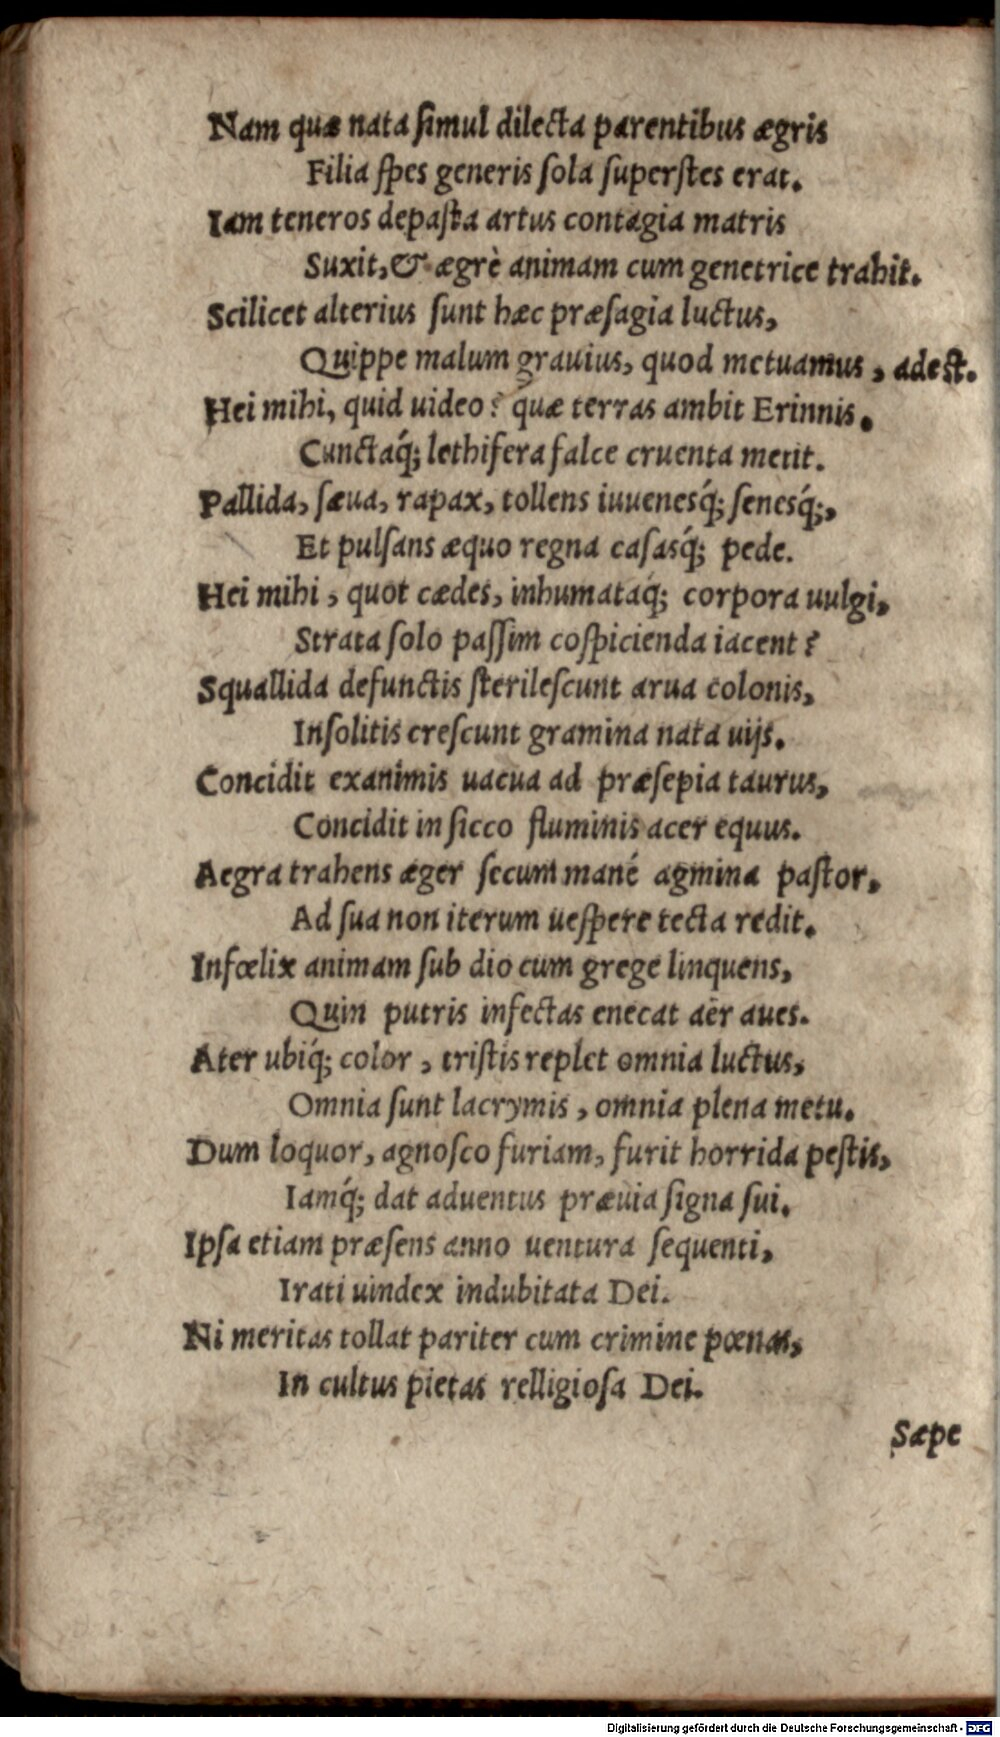 Nam quæ nata simul dilecta parentibus ægris
Filia spes generis sola superstes erat.
Iam teneros depasta artus contagia matris
Suxit, & ægrè animam cum genetrice trahit.
Scilicet alterius sunt hæc præsagia luctus,
Quippe malum grauius, quod metuamus, adest.
Hei mihi, quid uideo? quæ terras ambit Erinnis.
Cunctaq́; lethifera falce cruenta metit.
Pallida, sæua, rapax, tollens iuuenesq́; senesq́;,
Et pulsans æquo regna casasq́; pede.
Hei mihi, quot cædes, inhumataq́; corpora uulgi,
Strata solo passim cospicienda iacent?
Squallida defunctis sterilescunt arua colonis,
Insolitis crescunt gramina nata uijs.
Concidit exanimis uacua ad præsepia taurus,
Concidit in sicco fluminis acer equus.
Aegra trahens æger secum mané agmina pastor,
Ad sua non iterum uespere tecta redit.
Infœlix animam sub dio cum grege linquens,
Quin putris infectas enecat aër aues.
Ater ubiq́; color, tristis replet omnia luctus,
Omnia sunt lacrymis, omnia plena metu.
Dum loquor, agnosco furiam, furit horrida pestis,
Iamq́; dat aduentus præuia signa sui.
Ipsa etiam præsens anno uentura sequenti,
Irati uindex indubitata Dei.
Ni meritas tollat pariter cum crimine pœnas,
In cultus pietas relligiosa Dei.
Sæpe
Digitalisierung gefördert durch die Deutsche Forschungsgemeinschaft - DFG